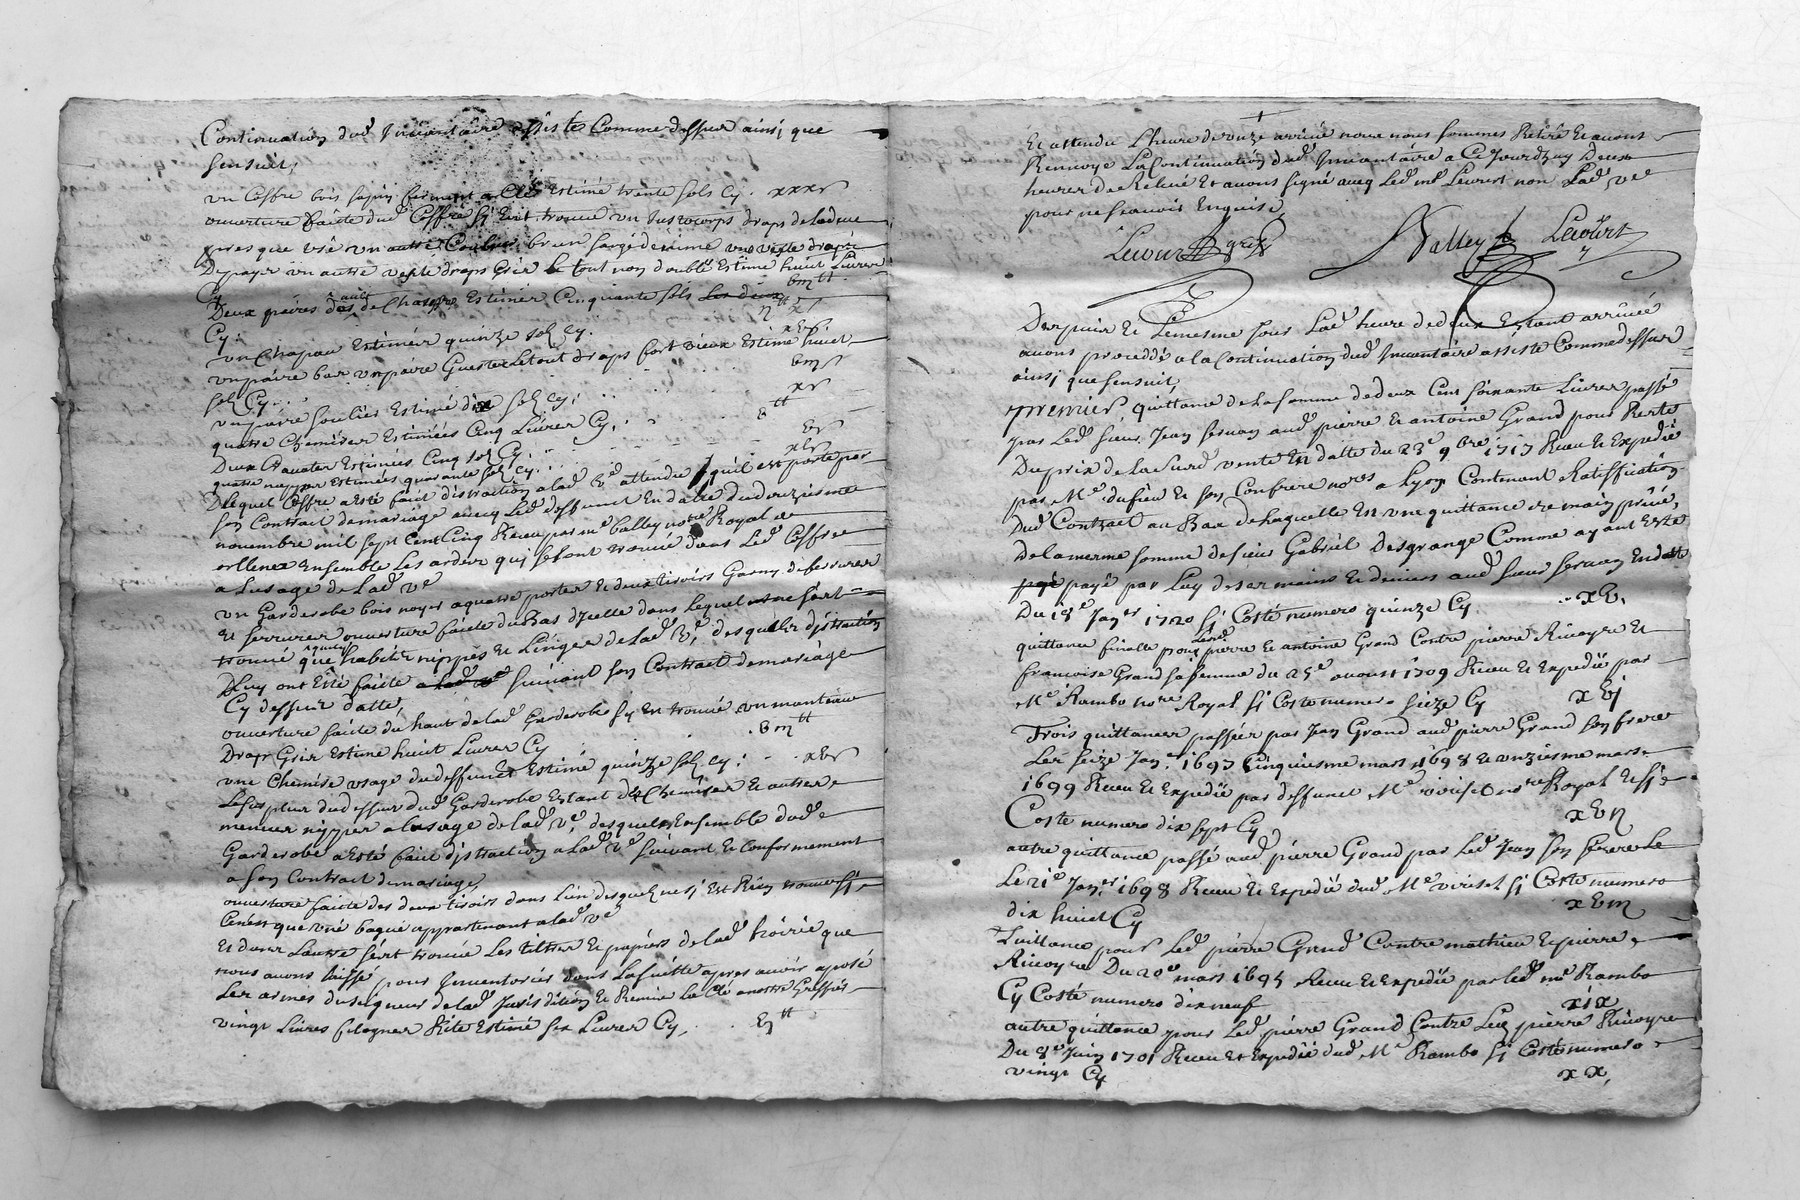 Continuation dud Inventaire assiste Comme dessus ainsi que
sensuit,
un Coffre bois sapin fermant a Clé Estimé trente sols Cy . xxxs
ouverture faicte dud Coffre sy Est trouvé un Justocorps draps
presque usé un autre Couleur brun une veste drap
un autre veste draps Gris le tout non doublé Estimé huict Livres
Cy viii tt
Deux paires bas de Chasse Estimér Cinquante sols les deux
Cy. ii tt xs
un Chapau Estimér quinze sol Cy. xvs
un paire bas un paire Guestre Le tout draps fort vieux Estimé huict
sol Cy . . viiis
un paire soulier Estimé dix sol Cy . xs
quatre Chemiser Estimées Cinq Livres Cy, . v tt
Deux Estimées Cinq sol Cy . vs
quatre Estimées quarante sol Cy . . xls
Dlequel Coffre a Esté faict distraction a lad ve attendu quil est porté par
son Contract de mariage avecq Led deffunct En datte du douziesme
novembre mil sept Cent Cinq Receu par me valley nore Royal
Ensemble Les ardes quy se sont trouvé dans Led Coffre
a Lusage de Lad ve
un Garderobe bois noyer a quatre porter et deux tiroirs Garny de ferrures
Et serrures ouverture faicte du Bas dycelle dans Lequel
trouvé que habitz nippes et Linges de lad ve desquels distraction
Luy ont Esté faicte a lad ve suivant son Contract de mariage
Cy dessus datté,
ouverture faicte du haut de lad Garderobe sy En trouvé un manteau
Drap Gris Estimé huict Livres Cy . viii tt
une Chemise usage du deffunct Estimé quinze sol Cy : . . xvs
Le surplus du dessus dud Garderobe Estant de Chemiser et autres
menues nipper a lusage de lad ve desquels Ensemble dud
Garderobe a Esté faict distraction a Lad ve suivant et Conformement
a son Contract de mariage,
ouverture faicte des deux tiroirs dans Lun desquel ne si Est Rien trouvé si
Cenest que une bague appartenant a lad ve
Et dans Lautre sest trouvé Les tiltres Et papiers de lad hoirie que
nous avons laissé pour Inventorier dans La suitte apres avoir aposé
Les armes du seigneur de lad Jurisdiction Et Remise la Clé a nostre Greffier
vingt Livres Estimé six Livres Cy, . . vi tt
Et attendu Lheure de onze arrivée nous nous sommes Retiré Et avons
Renvoyé La Continuation dud Inventaire a Ce Jourdhuy Deux
heures de Relevé Et avons signé avecq Led me Lecourt non Lad ve
pour ne scavoir Enquise,
Lecourt greff Valley Lecourt
Depuis Et Lemesme Jour Lad heure de deux Estant arrivée
avons proceddé a la Continuation dud Inventaire assiste Comme dessus
ainsi que sensuit,
Premier. quittance de la somme de deux Cent soixante Livres passé
par Led sieur Jean servan aud pierre Et antoine Grand pour Reste
Du prix de La susd vente En datte du 23e 9bre 1717 Receu Et Expedié
par Me dufieu Et son Confrere nores a Lyon Contenant Ratiffication
Dud Contract au Bas de Laquelle Est une quittance de main privé,
de la mesme somme de sieur Gabriel Desgrange Comme ayant Esté
payé par Luy de ses mains Et deniers aud sieur servan En datte
Du 18e Janer 1720 si Costé numero quinze Cy . . xv.
quittance finalle pour Lesd pierre Et antoine Grand Contre pierre Rivoyre Et
francoise Grand sa femme du 25e avoust 1709 Receu Et Expedié par
Me Rambo nore Royal si Costé numero seize Cy xvj
Trois quittances passées par Jean Grand aud pierre Grand son frere
Les seize Janer 1697 Cinquiesme mars 1698 Et unziesme mars
1699 Receu Et Expedié par deffunct Me nore Royal
Costé numero dix sept Cy xvii
autre quittance passé aud pierre Grand par Led Jean son frere Le
Le 21e Janer 1698 Receu Et Expedié dud Me si Costé numero
dix huict Cy xviii
quittance pour Led pierre Grand Contre mathieu Et pierre
Rivoyre Du 20e mars 1695 Receu Et Expedié par led me Rambo
Cy Costé numero dix neuf xix
autre quittance pour Led pierre Grand Contre Led pierre Rivoyre
Du 8e Juin 1701 Receu Et Expedié dud Me Rambo si Costé numero
vingt Cy xx,